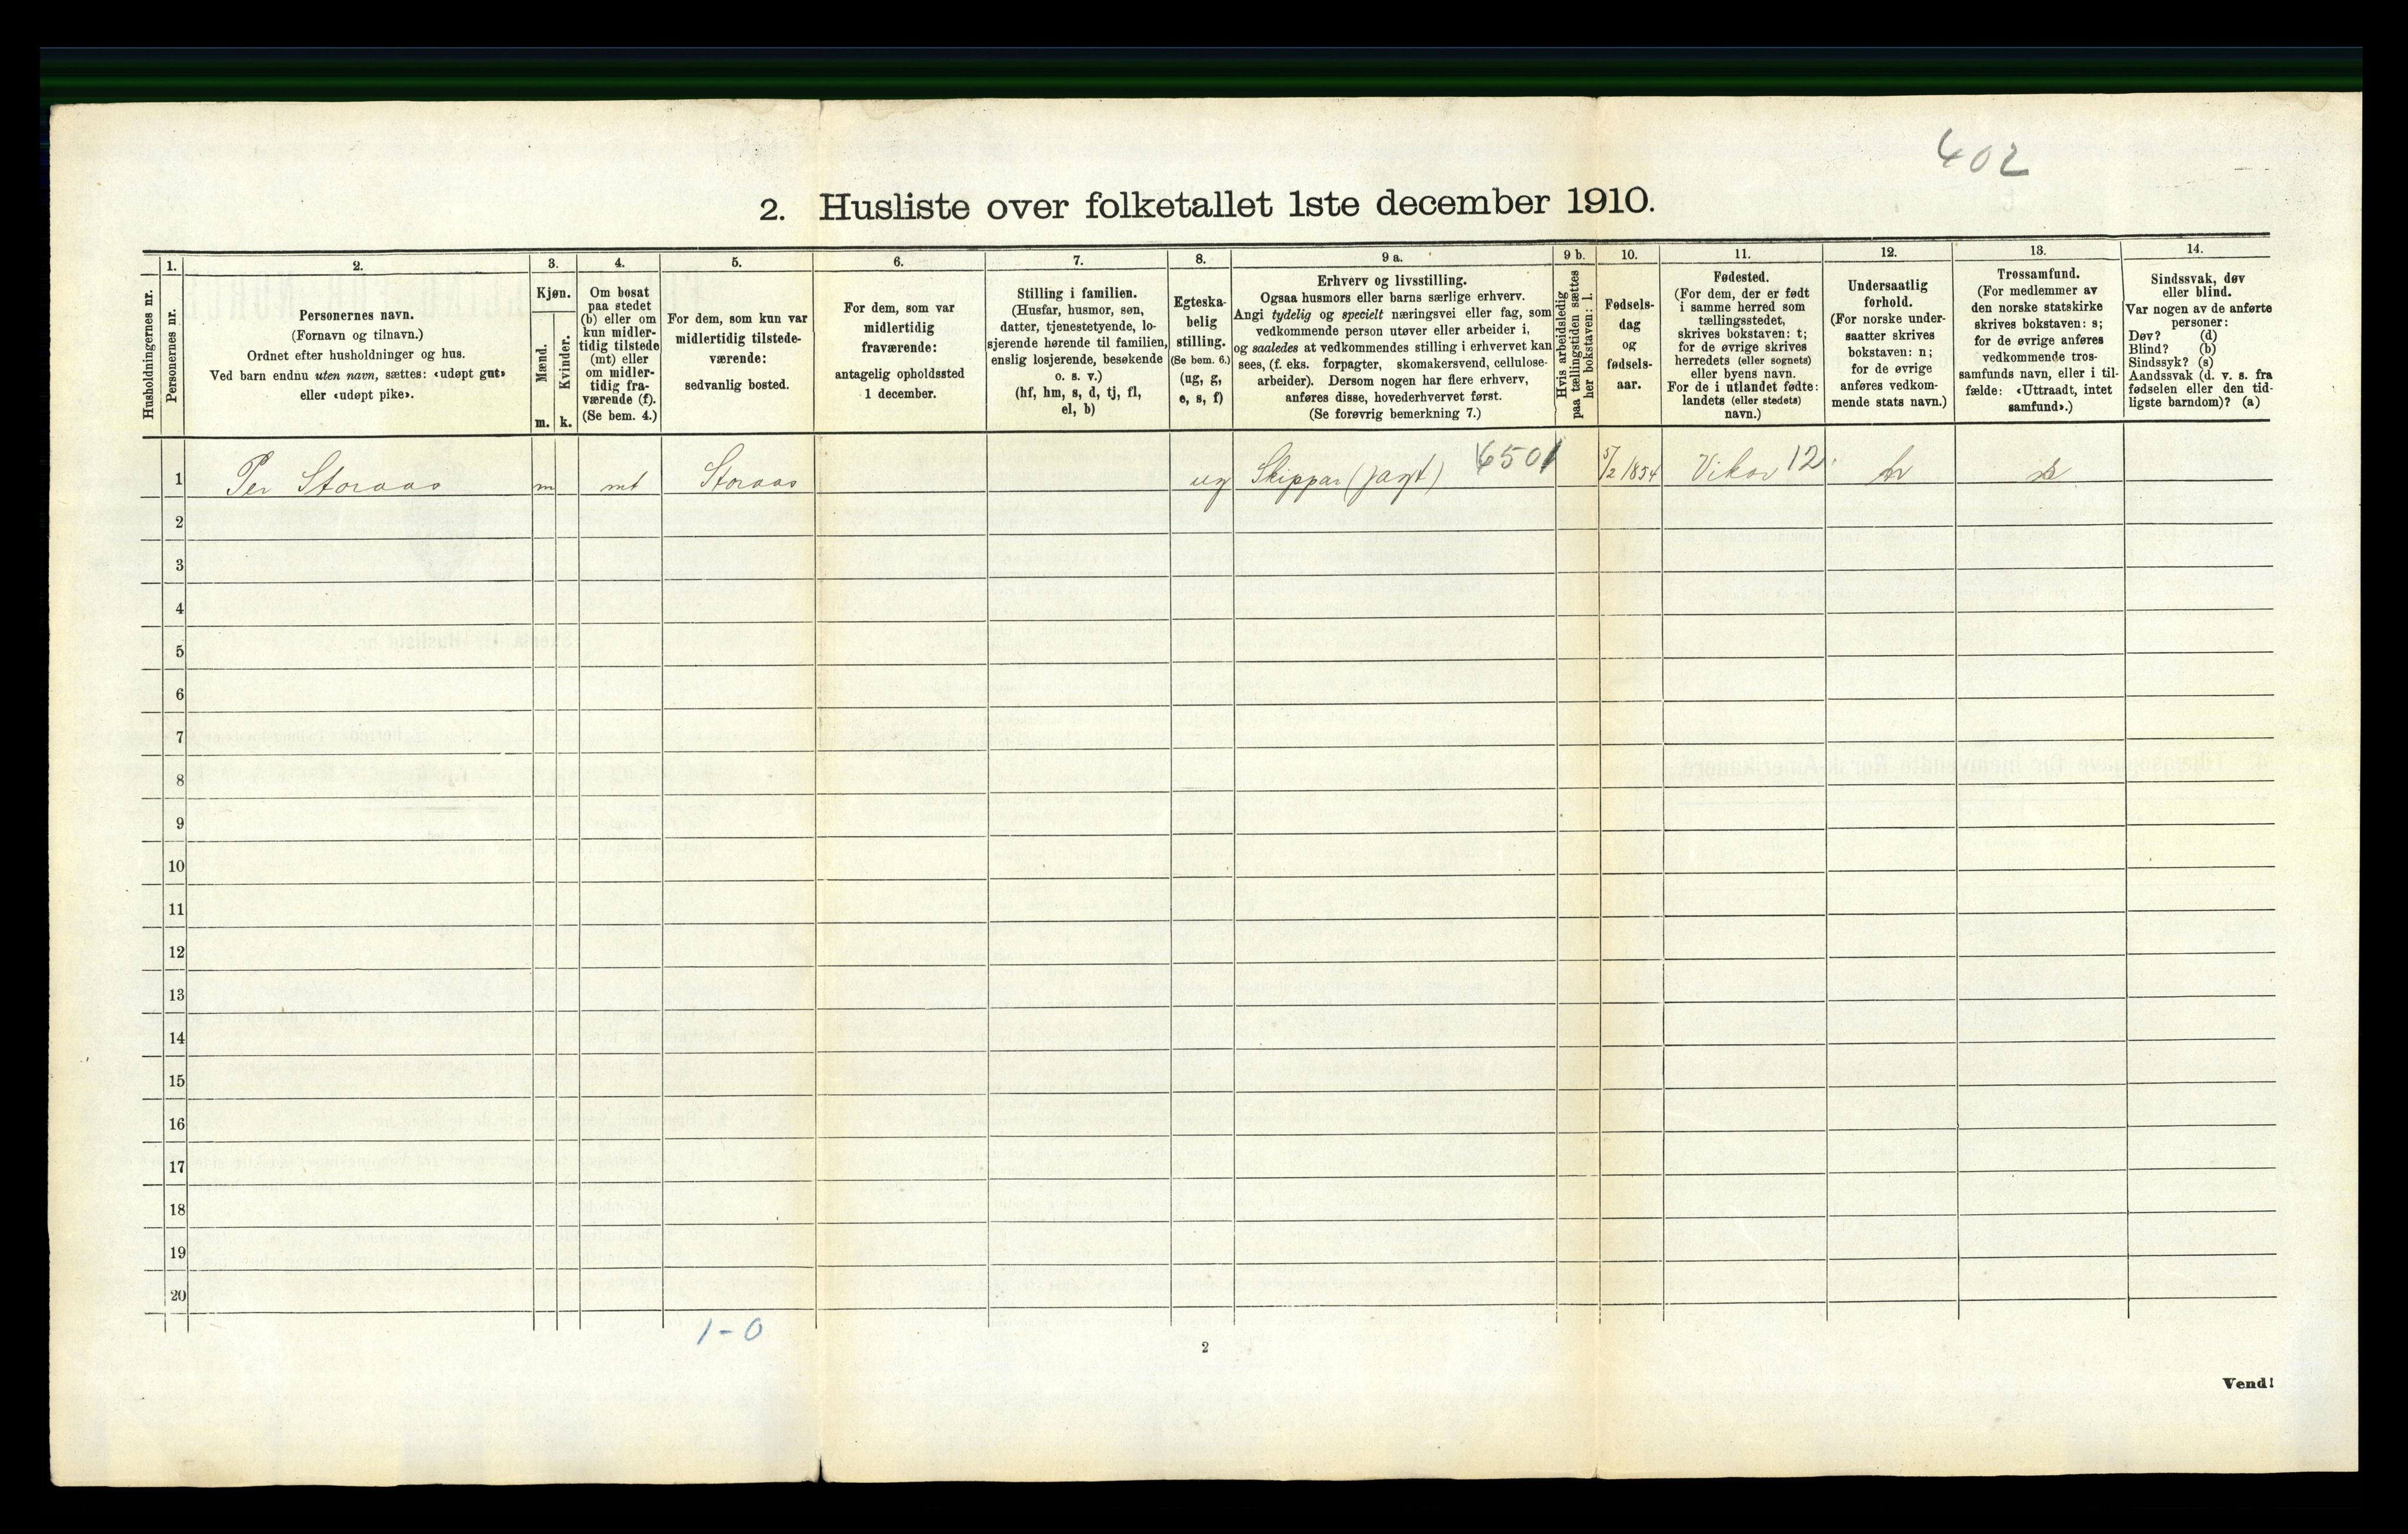 402
2. Husliste over folketallet 1ste december 1910.
Husholdningernes nr.
1.
Personernes nr.
2.
Personernes navn.
(Fornavn og tilnavn.)
Ordnet efter husholdninger og hus.
Ved barn endnu uten navn, sættes: «udøpt gut»
eller «udøpt pike».
3.
Kjøn.
Mænd.
Kvinder.
m. k.
4.
Om bosat
paa stedet
(b) eller om
kun midler-
tidig tilstede
(mt) eller
om midler-
tidig fra-
værende (f).
(Se bem. 4.)
5.
For dem, som kun var
midlertidig tilstede-
værende:
sedvanlig bosted.
6.
For dem, som var
midlertidig
fraværende:
antagelig opholdssted
1 december.
7.
Stilling i familien.
(Husfar, husmor, søn,
datter, tjenestetyende, lo-
sjerende hørende til familien,
enslig losjerende, besøkende
o. s. v.)
(hf, hm, s, d, tj, fl,
el, b)
8.
Egteska-
belig
stilling.
(Se bem. 6.)
(ug, g,
e, s, f)
9 a.
Erhverv og livsstilling.
Ogsaa husmors eller barns særlige erhverv.
Angi tydelig og specielt næringsvei eller fag, som
vedkommende person utøver eller arbeider i,
og saaledes at vedkommendes stilling i erhvervet kan
sees, (f. eks. forpagter, skomakersvend, cellulose-
arbeider). Dersom nogen har flere erhverv,
anføres disse, hovederhvervet først.
(Se forøvrig bemerkning 7.)
9 b.
Hvis arbeidsledig
paa tællingstiden sættes
her bokstaven: l.
10.
Fødsels-
dag
og
fødsels-
aar.
11.
Fødested.
(For dem, der er født
i samme herred som
tællingsstedet,
skrives bokstaven: t;
for de øvrige skrives
herredets (eller sognets)
eller byens navn.
For de i utlandet fødte:
landets (eller stedets)
navn.)
12.
Undersaatlig
forhold.
(For norske under-
saatter skrives
bokstaven: n;
for de øvrige
anføres vedkom-
mende stats navn.)
13.
Trossamfund.
(For medlemmer av
den norske statskirke
skrives bokstaven: s;
for de øvrige anføres
vedkommende tros-
samfunds navn, eller i til-
fælde: «Uttraadt, intet
samfund».)
14.
Sindssvak, døv
eller blind.
Var nogen av de anførte
personer:
Døv? (d)
Blind? (b)
Sindssyk? (s)
Aandssvak (d. v. s. fra
fødselen eller den tid-
ligste barndom)? (a)
1 Per Storaas m mt Storaas ug Skippar (jagt) 6501 5/2 1854 Vikor 12 n s
2
3
4
5
6
7
8
9
10
11
12
13
14
15
16
17
18
19
20
1-0
2
Vend!